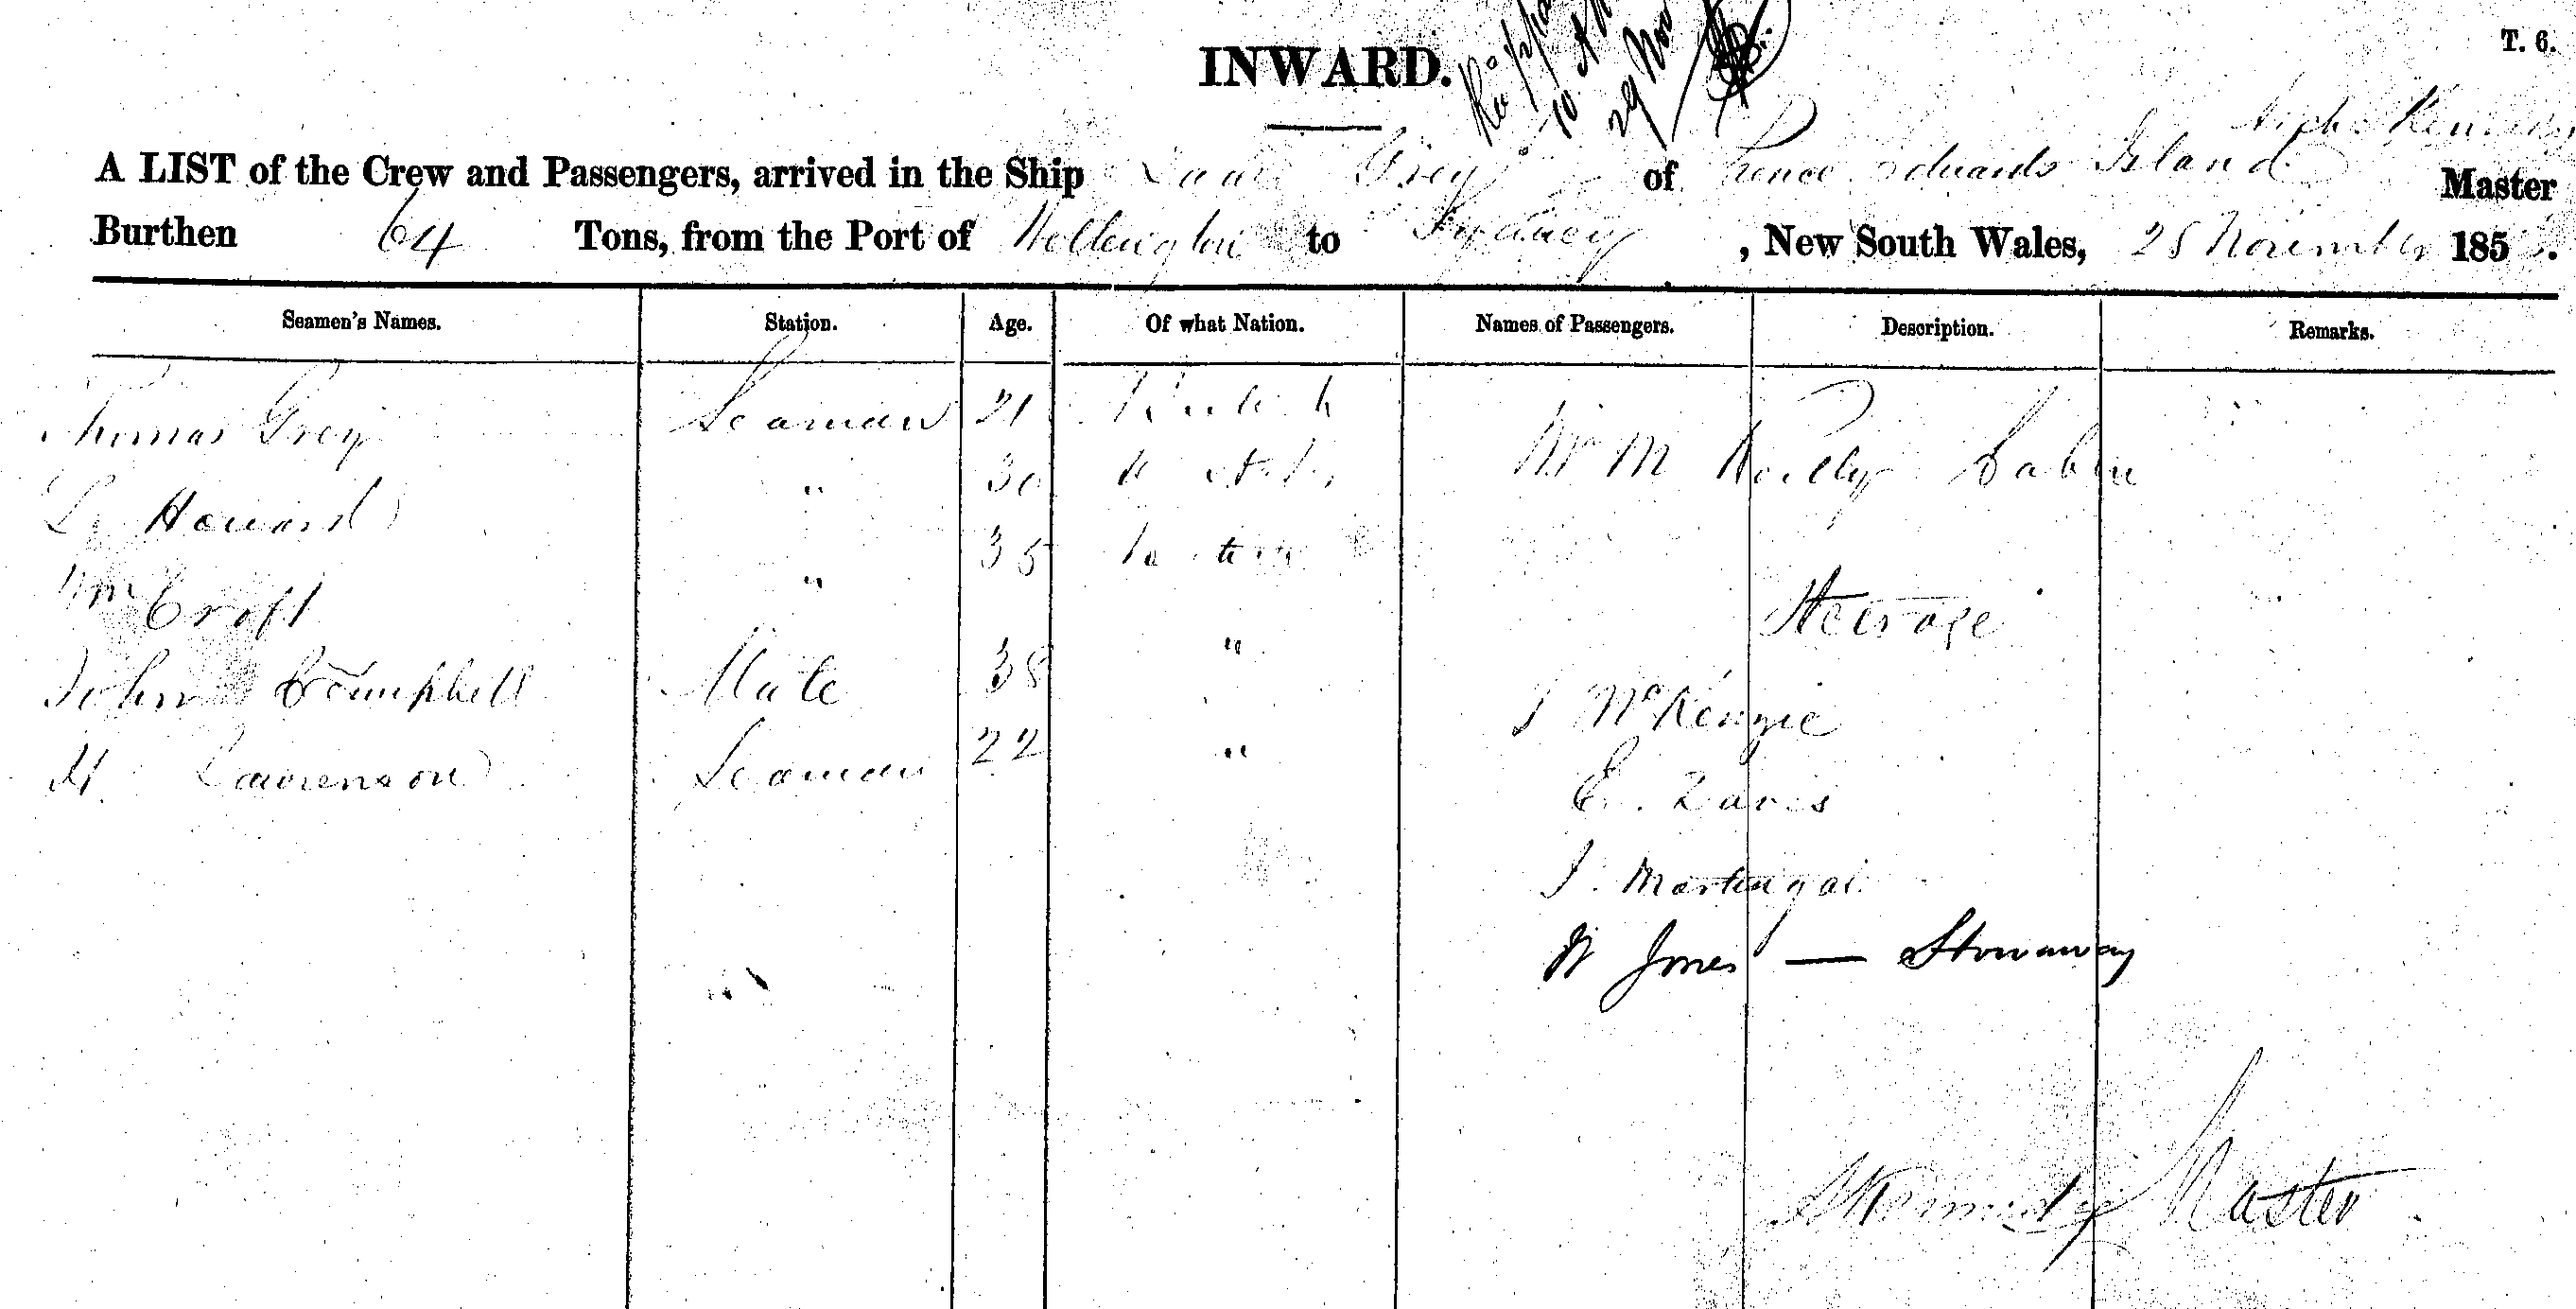 T. 6.
INWARD.
10 A
29 Nov
A LIST of the Crew and Passengers, arrived in the Ship Lady Grey of Prince Edwards Island Master
Burthen 64 Tons, from the Port of Wellington to Sydney, New South Wales, 28 November 185 .
Seamen's Names. Station. Age. Of what Nation. Names of Passengers. Description. Remarks.
Thomas Grey Seaman 21 British Mr M Reilly Cabin
Howard " 30
Wm Croft " 35
Steerage
John Campbell Mate 38 "
J McKenzie
H Lawrenson Seaman 22 "
E. Davis
J.
W Jones — Stowaway
Kennedy Master